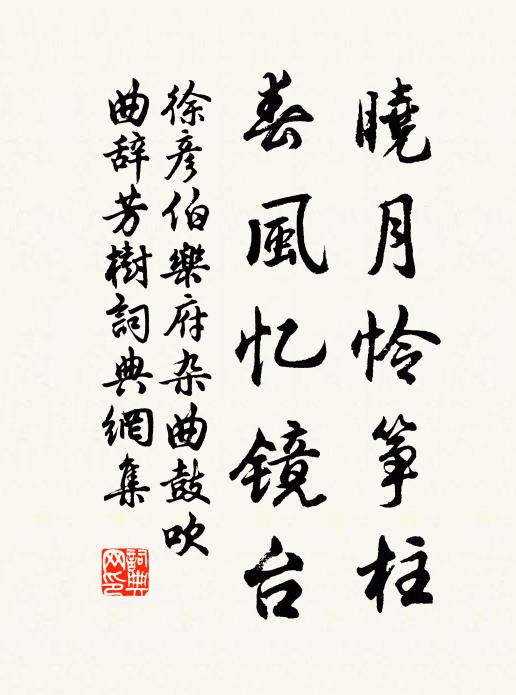 曉月怜筝柱
春風忆镜台
徐彦伯樂府杂曲鼓吹
曲辞芳樹詞典網集
詞典网印